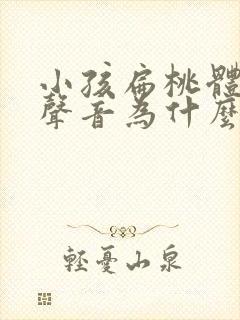 小孩扁桃體
聲音為什麼
輕憂山泉